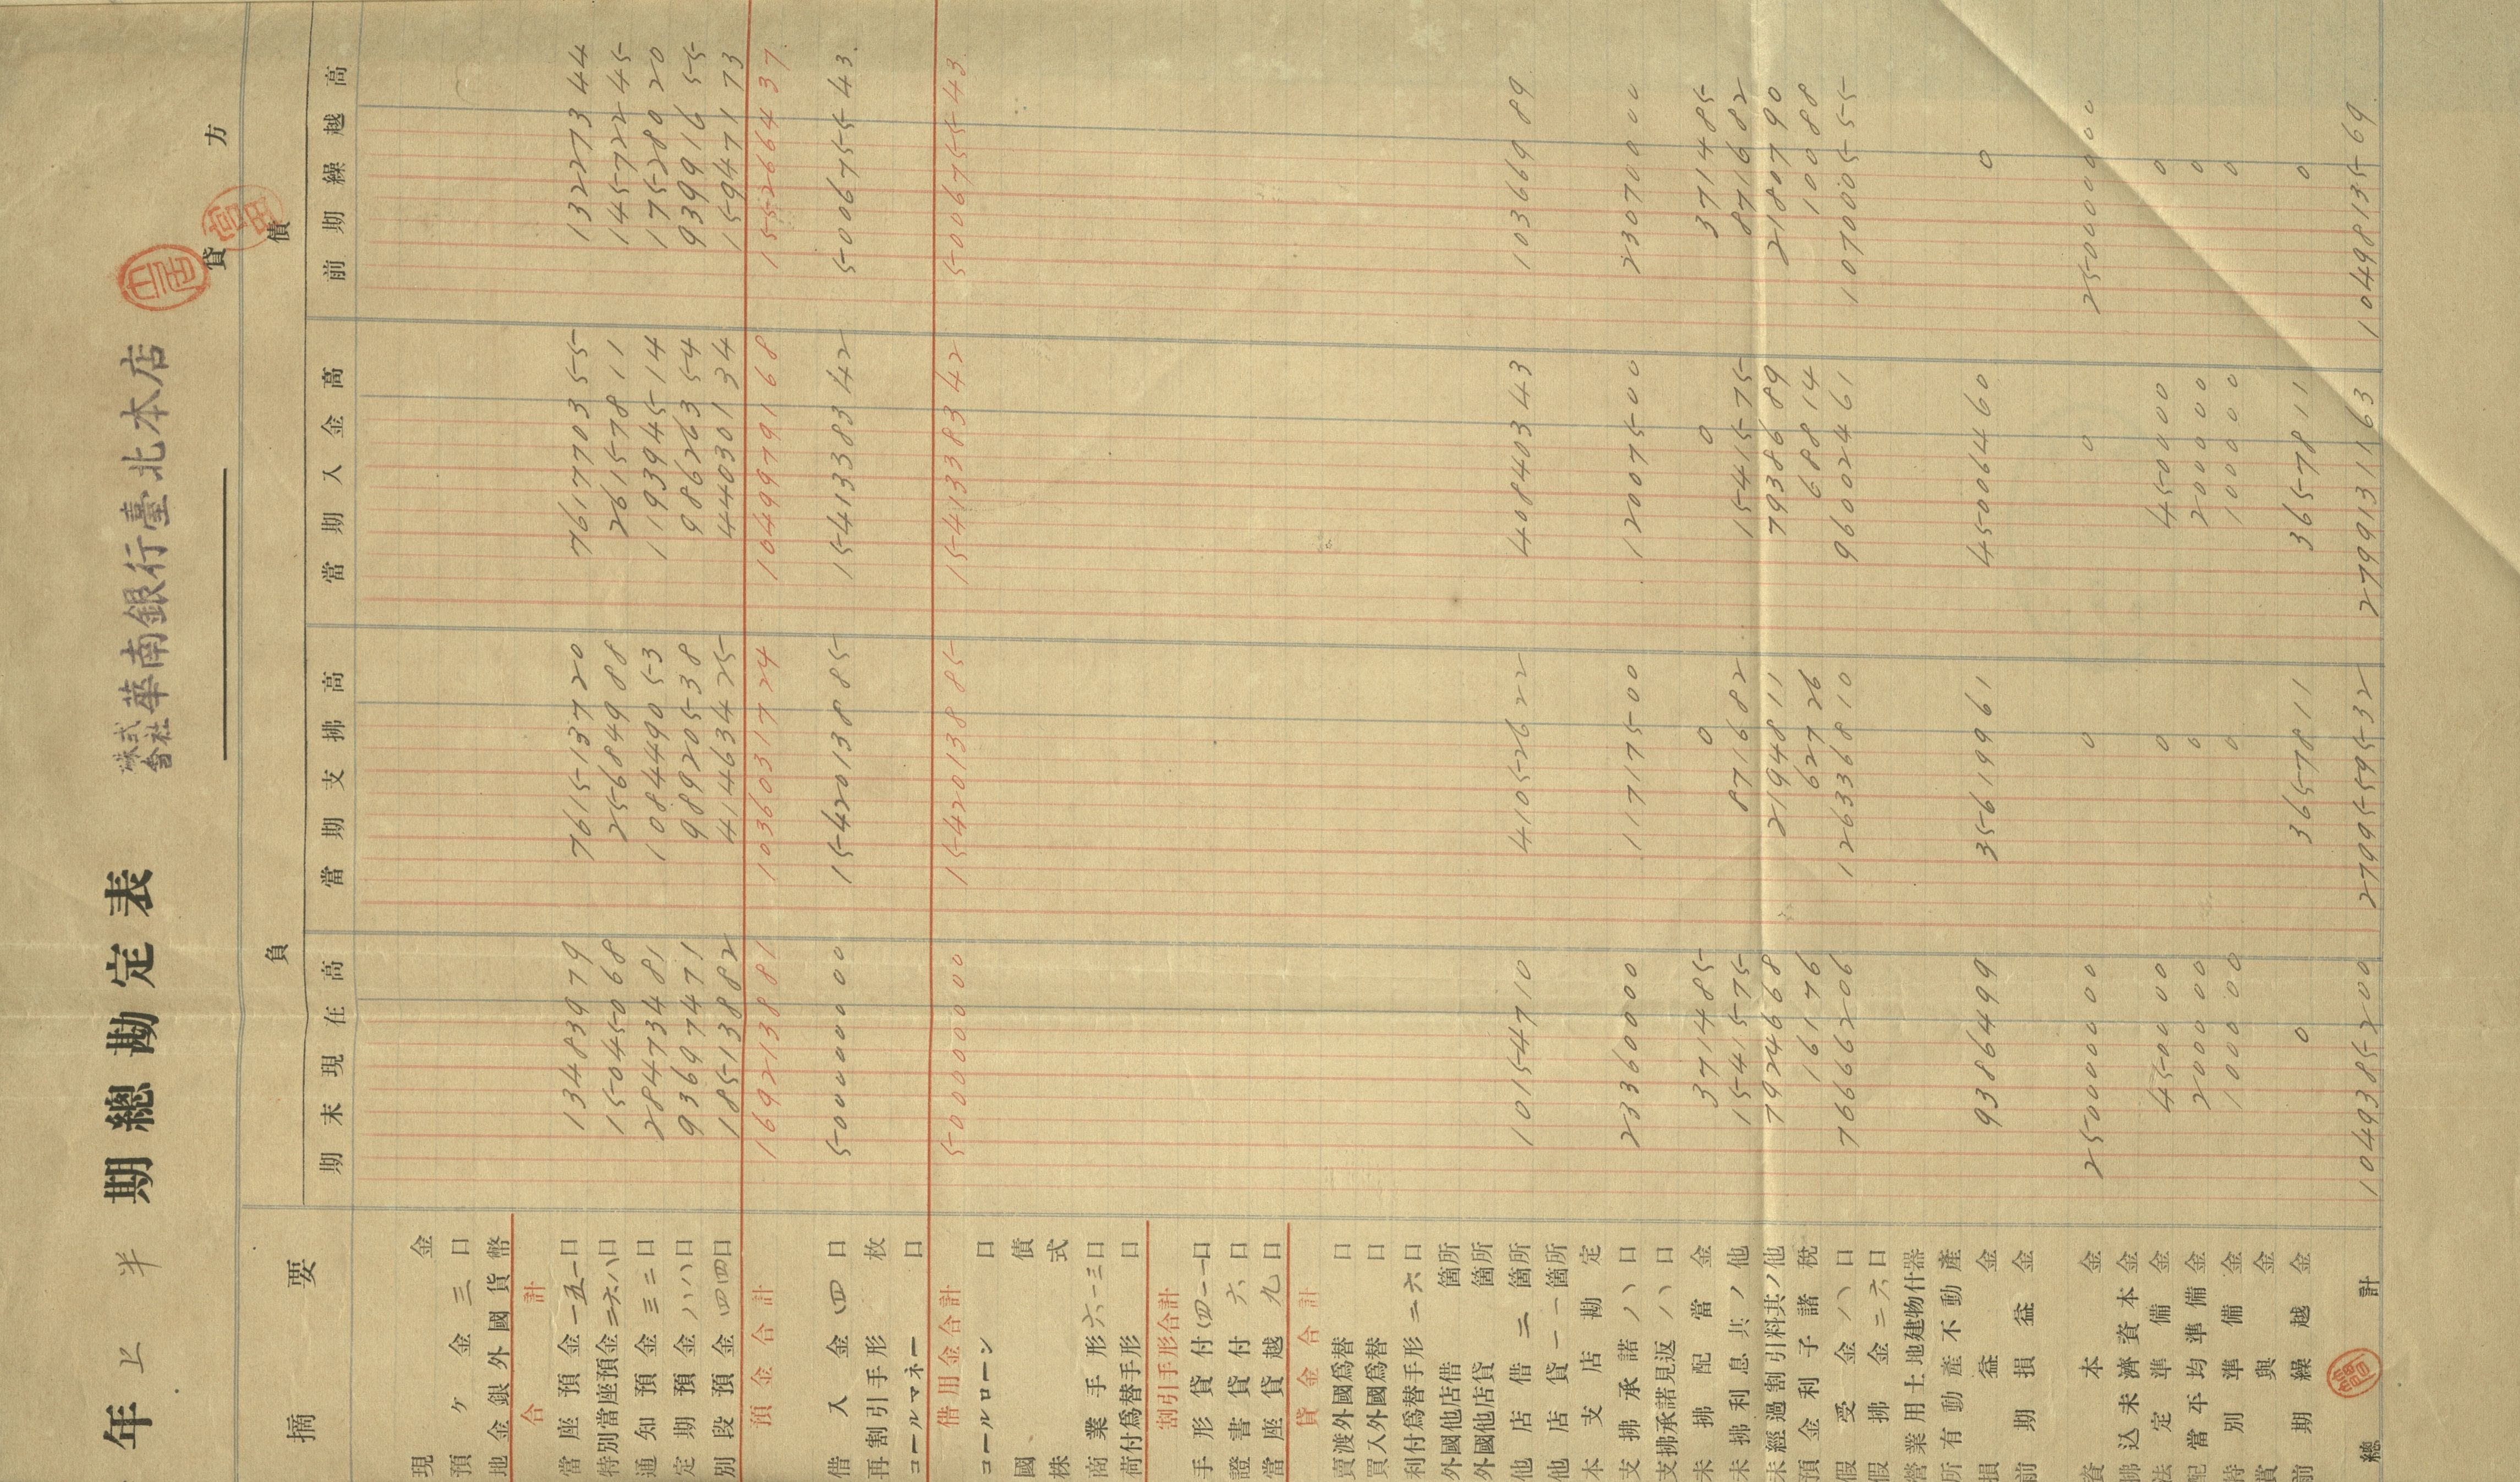 年 上半 期總勘定表 株式會社 華南銀行臺北本店
貸方
摘要 負債
期末現在高 當期支拂高 當期入金高 前期繰越高
現金
預ケ金 三口
地金銀外國貨幣
合計
當座預金 一五一口 13483979 761513720 761770355 13227344
特別當座預金 二六八口 15045068 25684988 26157811 14572245
通知預金 三三口 28473481 108449053 119394514 17528020
定期預金 八八口 93697471 98920538 98626354 93991655
別段預金 四四口 18513882 41463425 44030134 15947173
預金合計 169213881 1036031724 1049979168 155266437
借入金 四口 500000000 1542013885 1541338342 500675543
再割引手形 枚
コールマネー 口
借用金合計 500000000 1542013885 1541338342 500675543
コールローン 口
國債
株式
商業手形 六一三口
荷付爲替手形 口
割引手形合計
手形貸付 四一一口
證書貸付 六口
當座貸越 九口
貸金合計
賣渡外國爲替 口
買入外國爲替 口
利付爲替手形 二六口
外國他店借 箇所
外國他店貸 箇所
他店借 二箇所 10154710 41052622 40840343 10366989
他店貸 一一箇所
本支店勘定
支拂承諾 八口 23360000 11717500 12007500 23070000
支拂承諾見返 八口
未拂配當金 371485 0 0 371485
未拂利息其ノ他 1541575 871682 1541575 871682
未經過割引料其ノ他 7924668 2194811 7938689 2180790
預金利子諸税 16176 62726 68814 10088
假受金 八口 76666206 126336810 96002461 107000555
假拂金 二六口
營業用土地建物什器
所有動產不動產
損益金 9386499 35619961 45006460 0
前期損益金
資本金 250000000 0 0 250000000
拂込未濟資本金
法定準備金 450000 0 450000 0
配當平均準備金 200000 0 200000 0
特別準備金 100000 0 100000 0
賞與金
前期繰越金 0 3657811 3657811 0
總計 1049385200 2799559532 2799131163 1049813569